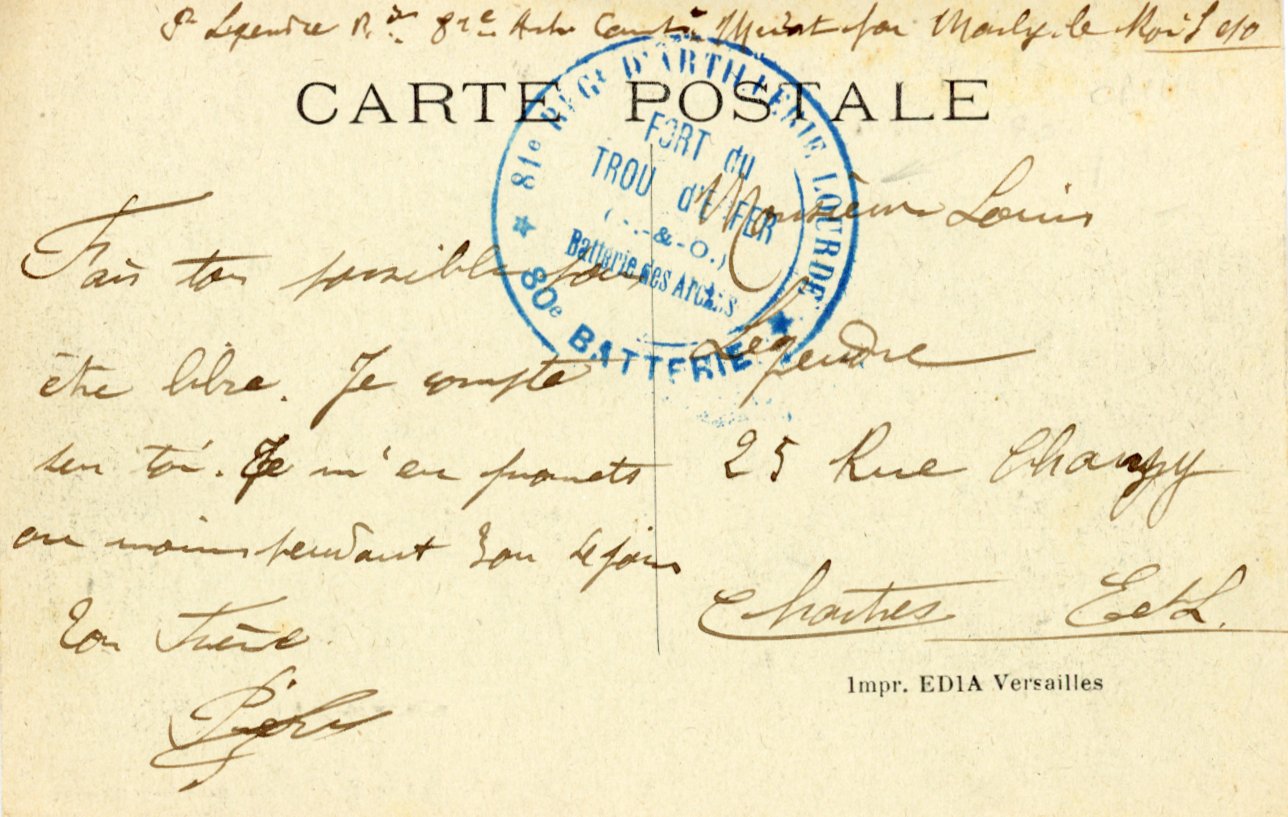 P. Legendre 81e Camp Marly-le-Roi S et O
CARTE POSTALE
★ 81e RÉGt D'ARTILLERIE LOURDE ★
FORT du
TROU d'ENFER
(S.-&-O.)
Batterie des Arches
80e BATTERIE
Fais ton possible pour
être libre. Je compte
sur toi. Je m'en promets
au moins pendant ton séjour
Ton Frère
Monsieur Louis
Legendre
25 Rue Chanzy
Chartres E et L.
Impr. EDIA Versailles